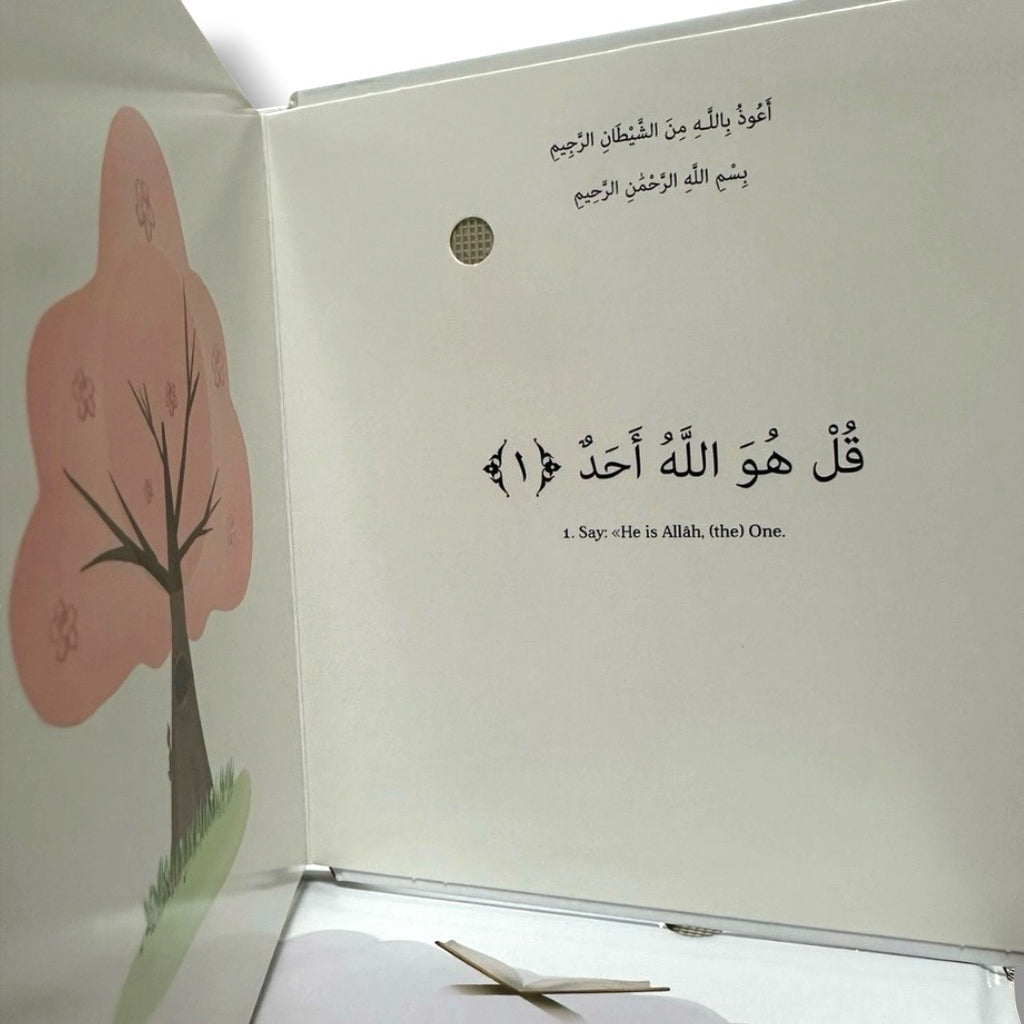 أَعُوذُ بِاللَّـهِ مِنَ الشَّيْطَانِ الرَّجِيمِ
بِسْمِ اللَّهِ الرَّحْمَٰنِ الرَّحِيمِ
قُلْ هُوَ اللَّهُ أَحَدٌ ﴿١﴾
1. Say: «He is Allâh, (the) One.